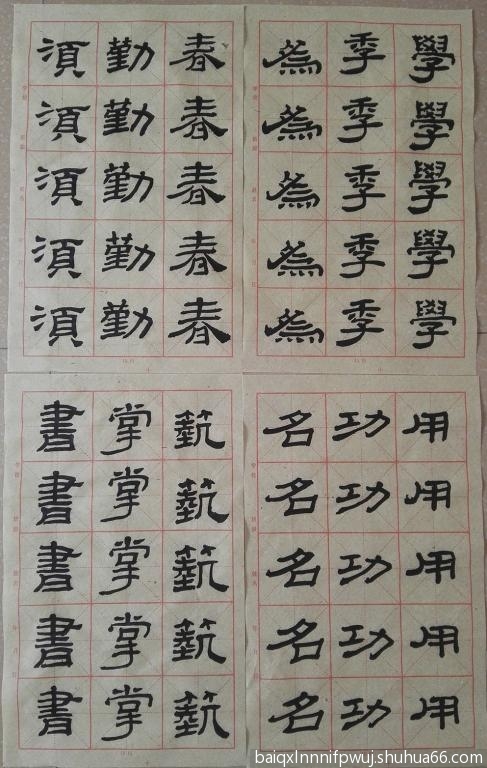 學學學學學
季季季季季
為為為為為
春春春春春
勤勤勤勤勤
須須須須須
用用用用用
功功功功功
名名名名名
蓺蓺蓺蓺蓺
掌掌掌掌掌
書書書書書
baiqxlnnnifpwuj.shuhua66.com